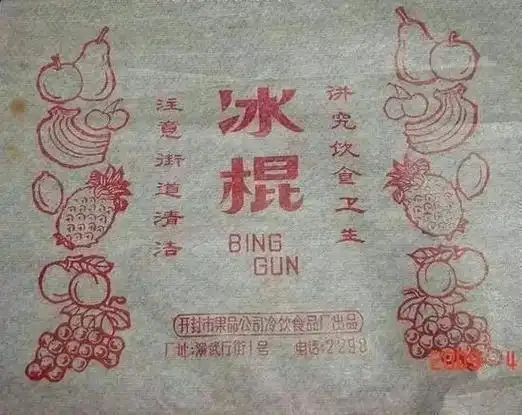 讲究饮食卫生
冰棍
注意街道清洁
BING
GUN
开封市果品公司冷饮食品厂出品
厂址:  行街1号 电话:2298